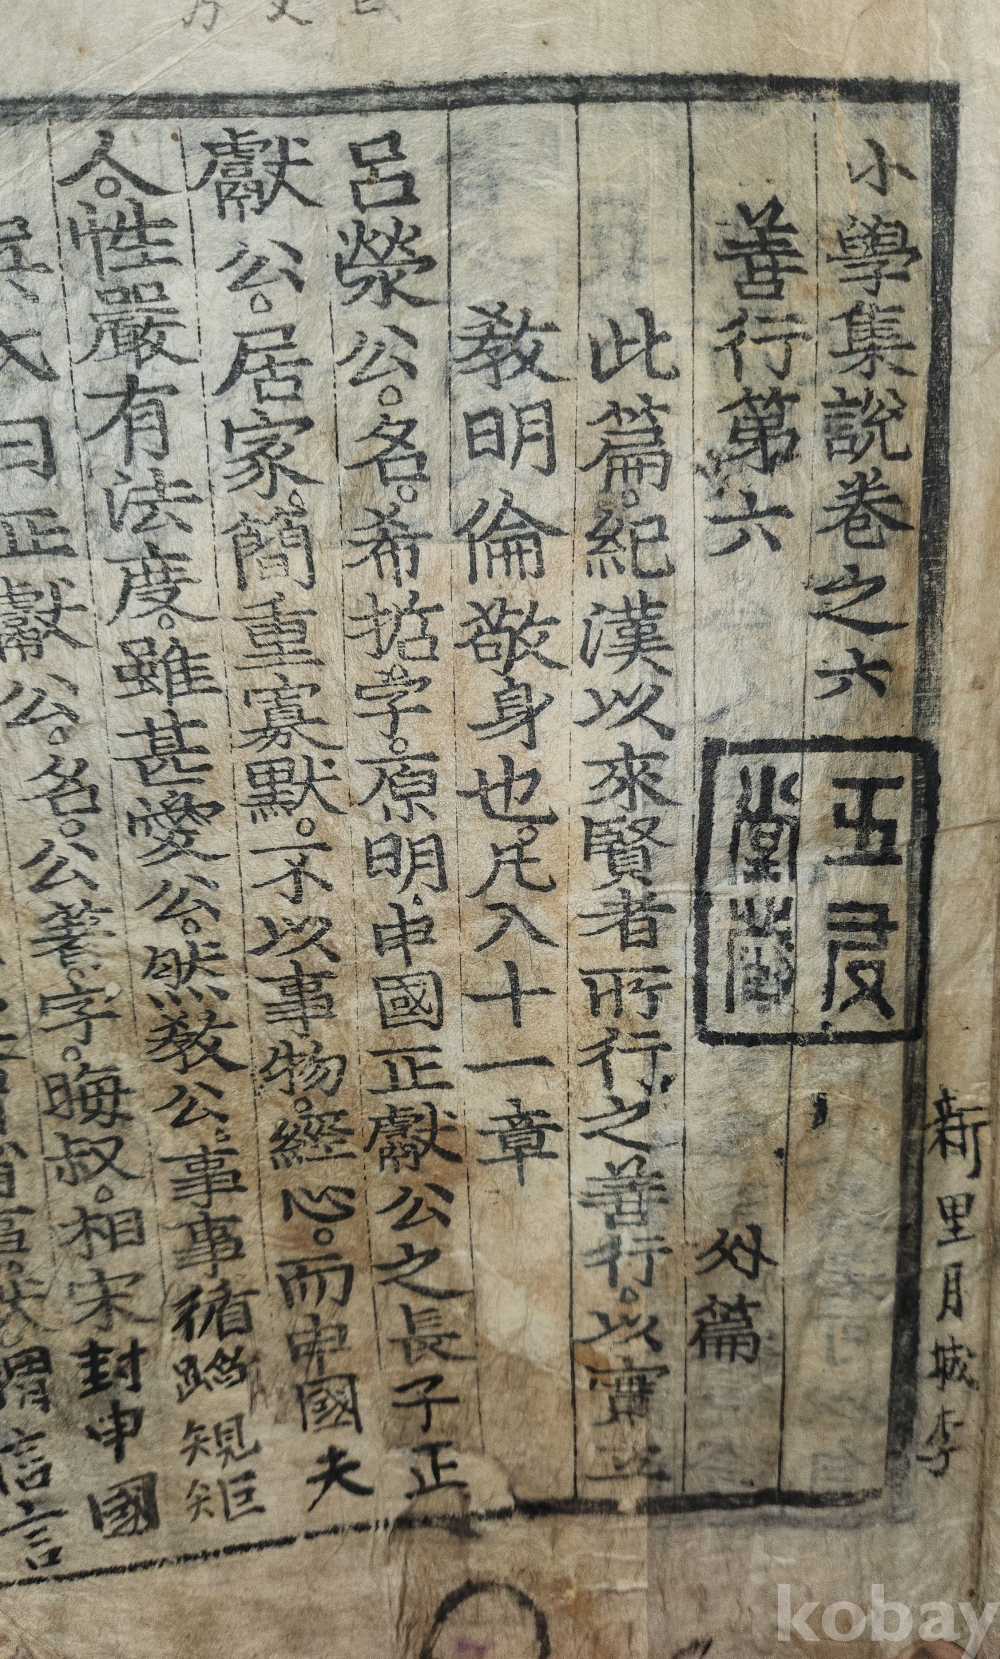 新里月城李
小學集說卷之六
善行第六 外篇
此篇。紀漢以來賢者所行之善行。以實立
敎明倫敬身也。凡八十一章
呂滎公。名。希哲字。原明。申國正獻公之長子正
獻公。居家。簡重寡默。不以事物。經心。而申國夫
人。性嚴有法度。雖甚愛公。然敎公。事事循蹈規矩
曰正獻公。名。公著。字。晦叔。相宋封申國
謂信言
kobay